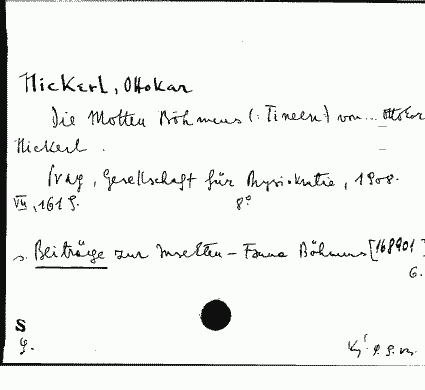 Nickerl, Ottokar
Die Motten Böhmens (: Tineen) von... Ottokar
Nickerl.
Prag, Gesellschaft für Physiokratie, 1908.
VII, 161 S. 8°
s. Beiträge zur Insekten-Fauna Böhmens [168901]
6.
S